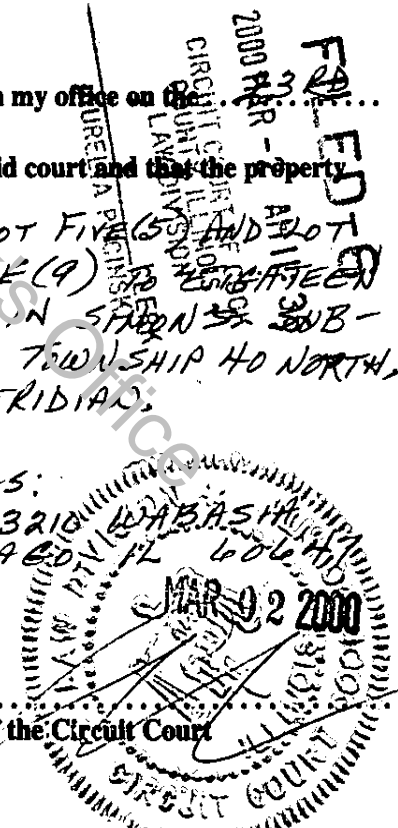 n my office on the 23 RD
id court and that the property
OT FIVE (5) AND LOT
E (9) TO EIGHTEEN
IN SUB-
TOWNSHIP 40 NORTH,
RIDIAN.
S:
3210 WABASH
AGO, IL
MAR 02 2000
the Circuit Court
LAW DIVISION
CIRCUIT COURT
FILED
2000 MAR -
CIRCUIT COURT OF
LAW DIVISION
AURELIA PUCINSKI
's Office